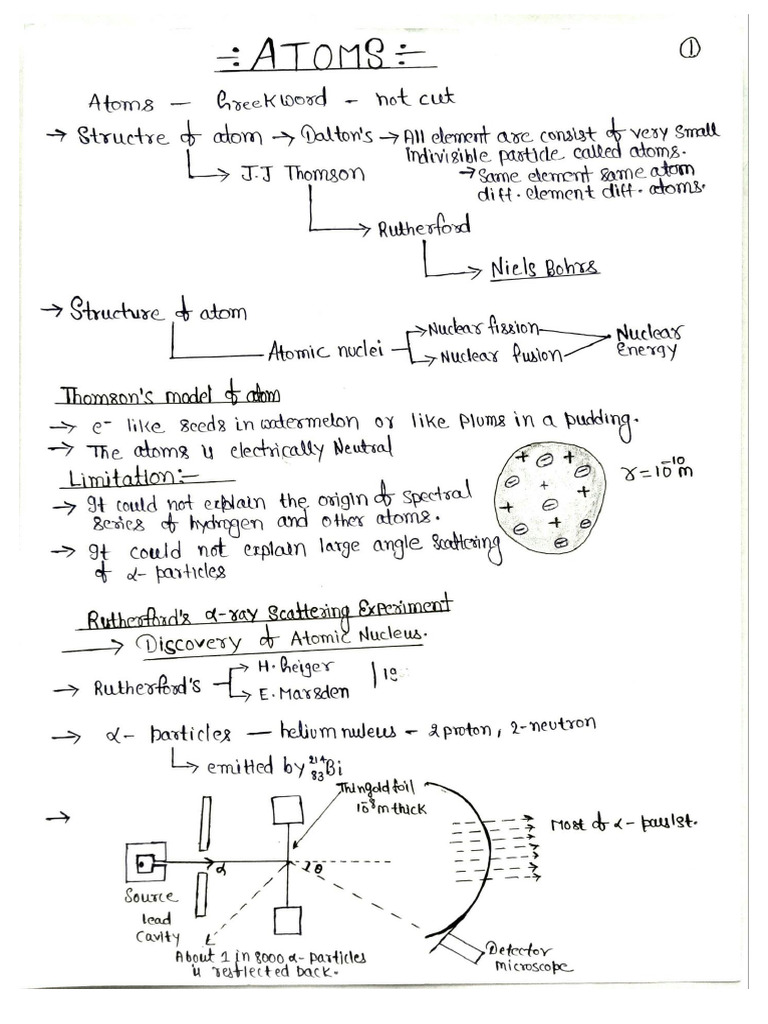 ÷ ATOMS ÷
①
Atoms — Greek word - not cut
→ Structre of atom → Dalton's → All element are consist of very small
indivisible particle called atoms.
→ J.J Thomson
→ Same element same atom
diff. element diff. atoms.
→ Rutherford
→ Niels Bohrs
→ Structure of atom
Atomic nuclei
→ Nuclear fission
→ Nuclear fusion
Nuclear
Energy
Thomson's model of atom
→ e⁻ like seeds in watermelon or like plums in a pudding.
→ The atoms is electrically Neutral
Limitation:-
→ It could not explain the origin of spectral
series of hydrogen and other atoms.
→ It could not explain large angle scattering
of α- particles
r = 10⁻¹⁰ m
Rutherford's α-ray Scattering Experiment
→ Discovery of Atomic Nucleus.
→ Rutherford's
→ H. Geiger
→ E. Marsden
→ α- particles — helium nuleus - 2 proton, 2-neutron
→ emitted by ²¹⁴₈₃Bi
→
Thin gold foil
10⁻⁸ m thick
Most of α- pass st.
α
θ
Source
lead
Cavity
About 1 in 8000 α- particles
is restlected back.
Detector
microscope